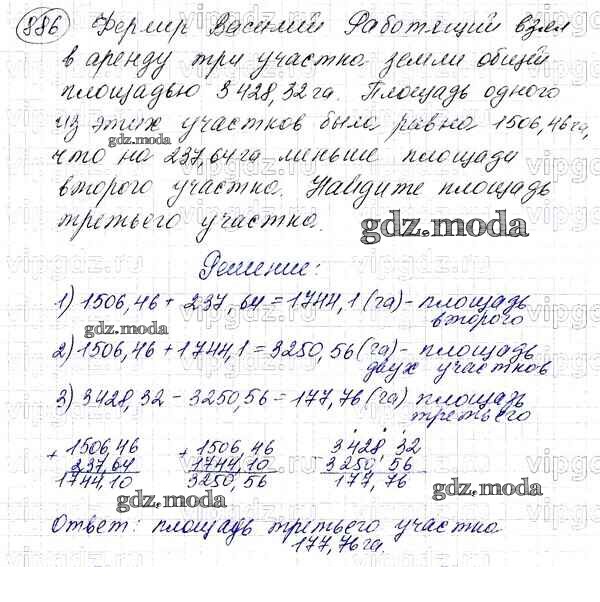 886 Фермер Василий Работящий взял
в аренду три участка земли общей
площадью 3428,32 га. Площадь одного
из этих участков была равна 1506,46 га,
что на 237,64 га меньше площади
второго участка. Найдите площадь
третьего участка.
gdz.moda
Решение:
1) 1506,46 + 237,64 = 1744,1 (га) - площадь
второго
gdz.moda
2) 1506,46 + 1744,1 = 3250,56 (га) - площадь
двух участков
3) 3428,32 - 3250,56 = 177,76 (га) площадь
третьего
+ 1506,46 + 1506,46 3428,32
237,64 1744,10 3250,56
1744,10 3250,56 177,76
gdz.moda gdz.moda
Ответ: площадь третьего участка
177,76 га.